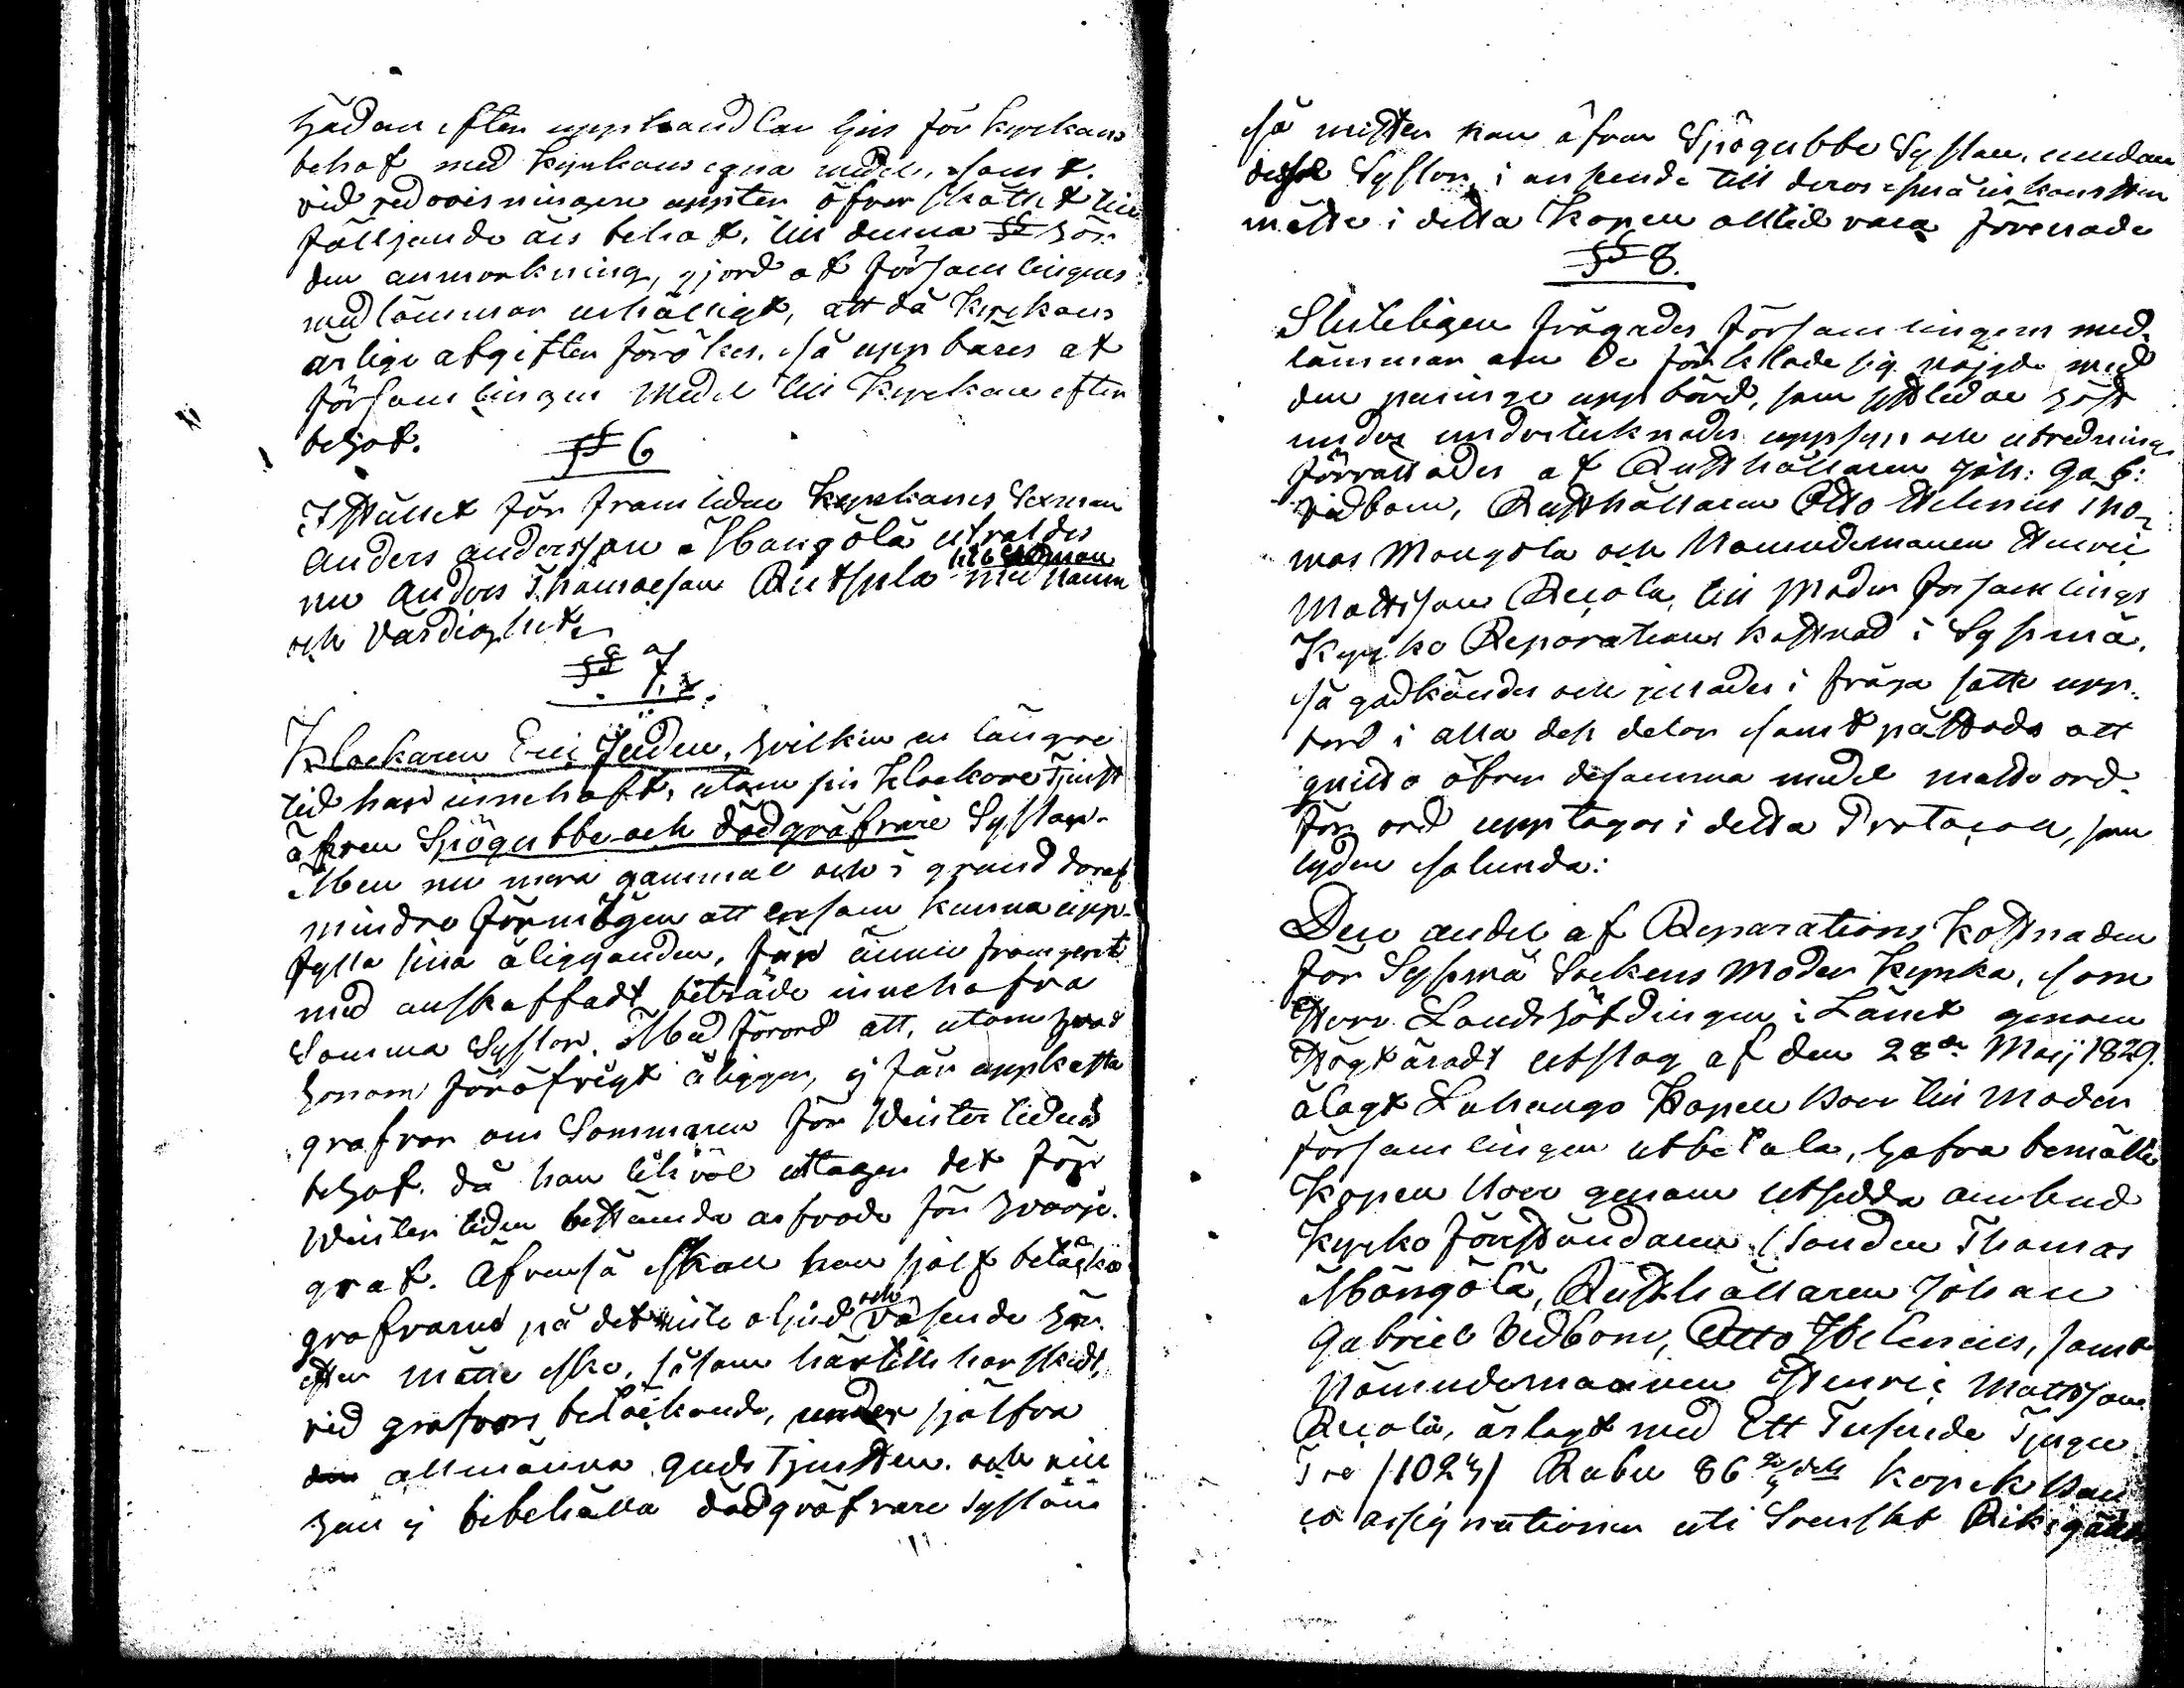 hädan efter upphandlar ljus för kyrkans
behof med kyrkans egna medel, samt
vid redovisningen uppter öfverskottet till
följande års behof. till denna § hör
den anmärkning, gjord af församlingens
medlämmar enhälligt, att då kyrkans
årliga afgifter förökes, så uppbäres af
församlingen medel till kyrkan efter
behof.
§ 6
I stället för framledne kyrkans Sexman
Anders Andersson Mangölä utvaldes
nu Anders Thomasson Rutsula med namn
och värdighet
§ 7.
Klockaren Eric Judin, hvilken en längre
tid har innehaft, utom sin klockare tjenst
äfven Spögubbe och dödgräfvare Sysslor.
Men nu mera gammal och i grund deraf
mindre förmögen att ensam kunna upp-
fylla sina åligganden, får ännu framgent
med anskaffadt biträde innehafva
samma Sysslor. Med förord att, utom hvad
honom föröfrigt åligger, ej får uppkasta
grafvar om Sommaren för Winter tidens
behof. då han likväl uttager det för
Winter tiden bestämda arfvode för hvarje
graf. Äfvenså skall han sjelf betäcka
grafvarne på det ej oljud och väsende här
efter måtte ske, såsom härtills har skedt,
vid grafvars betäckande, under sjelfva
allmänna Guds Tjensten. och vill
han ej bibehålla dödgräfvare Sysslan
så mister han äfven Spögubbe Sysslan, emedan
dessa Sysslor i anseende till deras små inkomster
måtte i detta Kapell alltid vara förenade
§ 8.
Sluteligen frågades församlingens med-
lämmar om de förklarade sig nöjde med
den peninge uppbörd, som sistledne höst
under undertecknades uppsyn och utredning
förrättades af Rusthållaren Joh: Gab:
Vidbom, Rusthållaren Otto Helenius Tho-
mas Mangölä och Nämndemannen Henric
Mattsson Rucola, till Moder församlings
Kyrko Reparations kostnad i Sysmä,
så godkändes och gillades i fråga satte upp-
börd i alla dess delar samt påstods att
quitto öfver desamma medel måtte ord
för ord upptagas i detta Protocoll, som
lyder salunda:
Den andel af Reparations Kostnaden
för Sysmä Sockens Moder Kyrka, som
Herr Landshöfdingen i Länet genom
Högtärade utslag af den 28de Maij 1829.
ålagt Luhango Kapell boer till Moder
församlingen utbetala, hafva bemälte
Kapell boer genom utsedda ombud
Kyrko föreståndaren Bonden Thomas
Mangölä, Rusthållaren Johan
Gabriel Vidbom, Otto Helenius, samt
Nämndemannen Henric Mattsson
Rucola, ärlagt med Ett Tusende Tjugu
Tre /1023/ Rubel 86 kopek Ban
co assignationer uti Svenskt Riksgälds